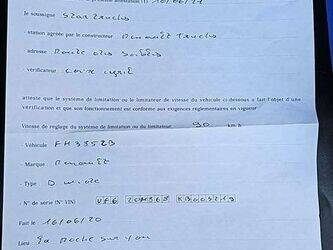 10/06/21
Je soussigné Star Trucks
- station agréée par le constructeur Renault Trucks
- adresse Route des Sables
- vérificateur
atteste que le système de limitation ou le limiteur de vitesse du véhicule ci-dessous a fait l'objet d'une
vérification et que son fonctionnement est conforme aux exigences réglementaires en vigueur
Vitesse de réglage du système de limitation ou du limiteur 90 km/h
- Véhicule FH335ZB
- Marque Renault
- Type D wide
- N° de série (N° VIN) VF6
Fait le 16/06/20
Lieu La Roche sur yon